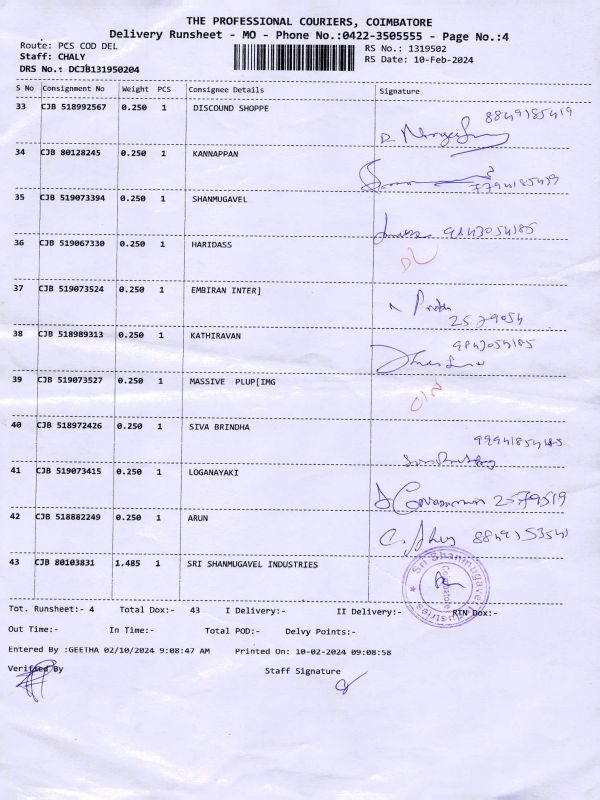 THE PROFESSIONAL COURIERS, COIMBATORE
Delivery Runsheet - MO - Phone No.:0422-3505555 - Page No.:4
Route: PCS COD DEL RS No.: 1319502
Staff: CHALY RS Date: 10-Feb-2024
DRS No.: DCJB131950204
S No Consignment No Weight PCS Consignee Details Signature
33 CJB 518992567 0.250 1 DISCOUND SHOPPE
34 CJB 80128245 0.250 1 KANNAPPAN
35 CJB 519073394 0.250 1 SHANMUGAVEL
9843054185
36 CJB 519067330 0.250 1 HARIDASS
37 CJB 519073524 0.250 1 EMBIRAN INTER]
2579054
38 CJB 518989313 0.250 1 KATHIRAVAN
9843054185
39 CJB 519073527 0.250 1 MASSIVE PLUP[IMG
40 CJB 518972426 0.250 1 SIVA BRINDHA
41 CJB 519073415 0.250 1 LOGANAYAKI
2579519
42 CJB 518882249 0.250 1 ARUN
43 CJB 80103831 1.485 1 SRI SHANMUGAVEL INDUSTRIES
Sri Shanmugavel Industries
Coimbatore
Tot. Runsheet:- 4 Total Dox:- 43 I Delivery:- II Delivery:- RTN Dox:-
Out Time:- In Time:- Total POD:- Delvy Points:-
Entered By :GEETHA 02/10/2024 9:08:47 AM Printed On: 10-02-2024 09:08:58
Verified By Staff Signature